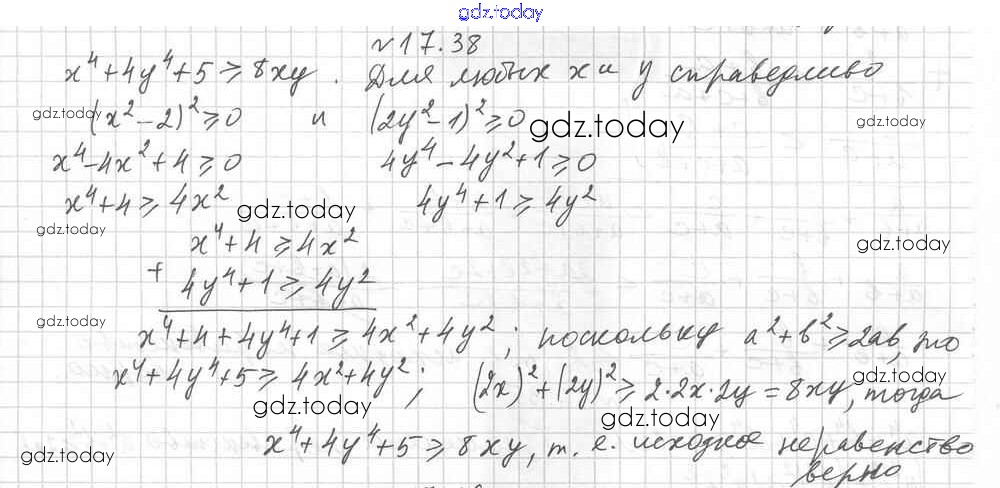 gdz.today
№17.38
x⁴+4y⁴+5 ≥ 8xy. Для любых x и y справедливо
gdz.today (x²-2)²≥0 и (2y²-1)²≥0 gdz.today gdz.today
x⁴-4x²+4≥0 4y⁴-4y²+1≥0
x⁴+4≥4x² gdz.today 4y⁴+1≥4y²
gdz.today x⁴+4≥4x² gdz.today
+ 4y⁴+1≥4y²
gdz.today x⁴+4+4y⁴+1≥4x²+4y²; поскольку a²+b²≥2ab, то
x⁴+4y⁴+5≥4x²+4y²; (2x)²+(2y)²≥2·2x·2y=8xy, тогда gdz.today
gdz.today gdz.today
gdz.today x⁴+4y⁴+5≥8xy, т. е. исходное неравенство
верно